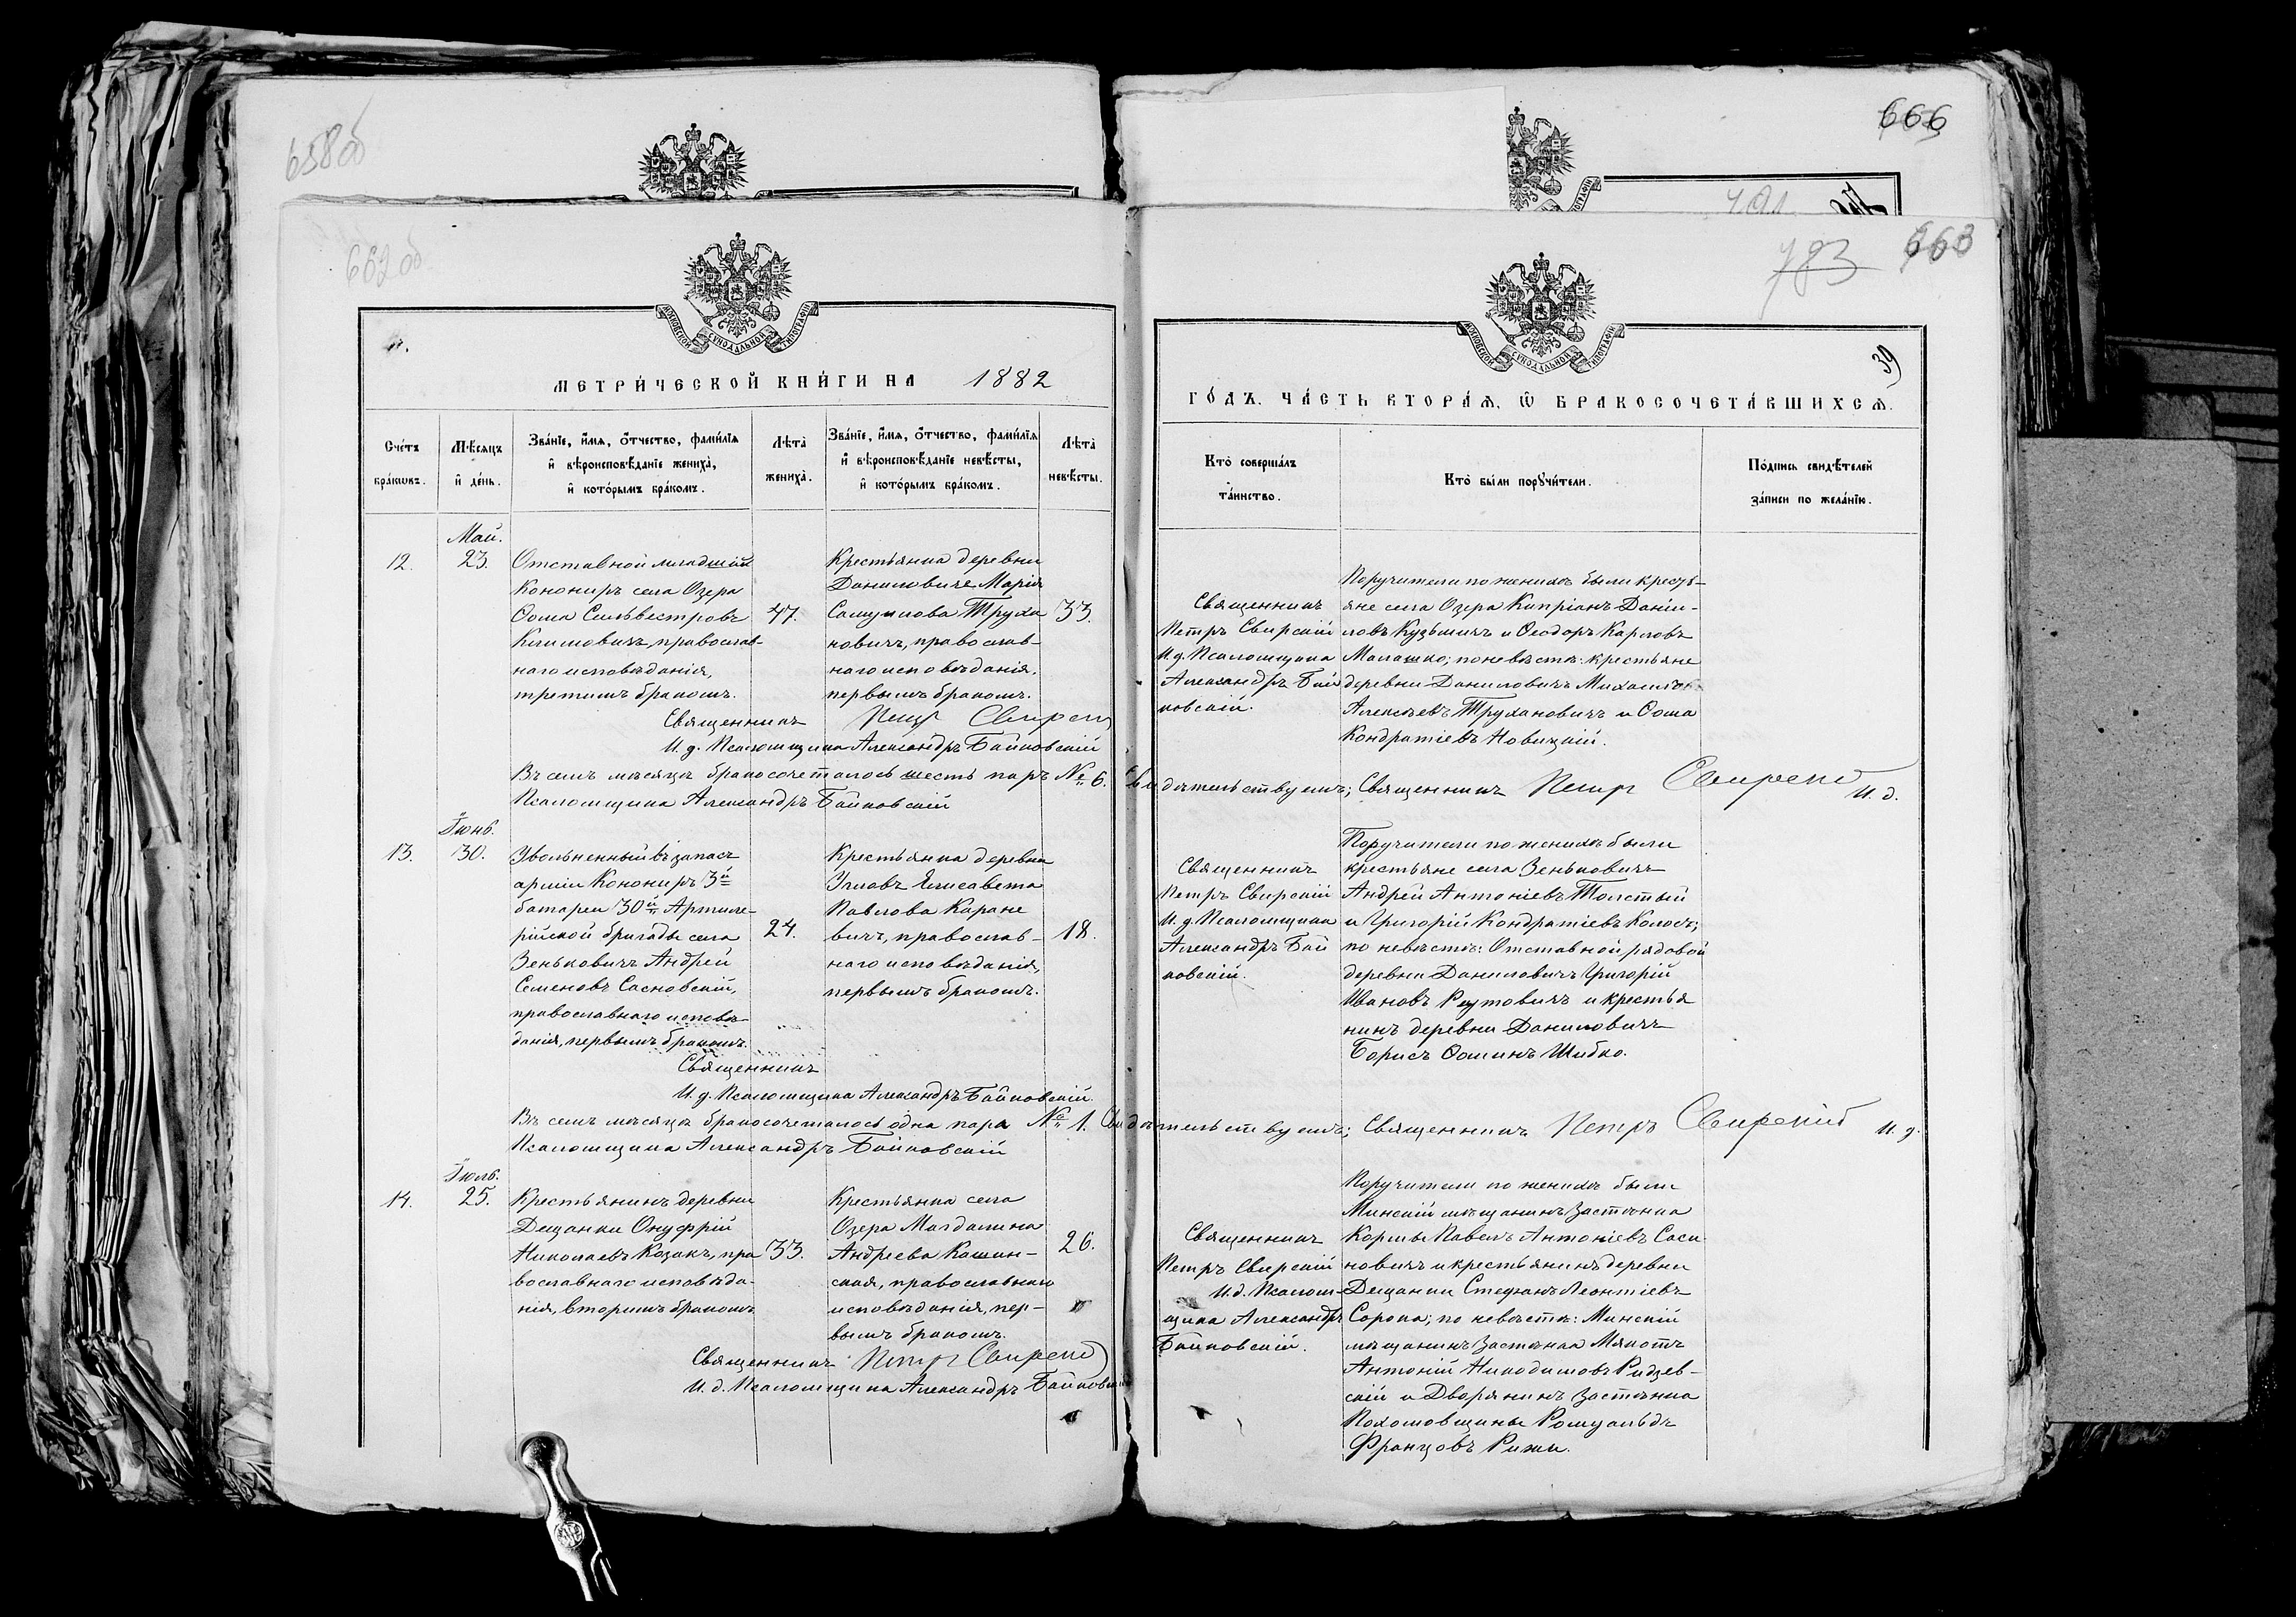 658об
666
662об
783 663
39
МЕТРИ́ЧЕСКОЙ КНИ́ГИ НА 1882
ГО́ДЪ. ЧА́СТЬ ВТОРА́Ѧ, Ѡ БРАКОСОЧЕТА́ВШИХСѦ.
Сче́тъ бра́кѡвъ.
Мѣ́сяцъ и де́нь.
Зва́нїе, и́мѧ, о́тчество, фами́лїѧ и вѣроисповѣ́данїе жениха̀, и кото́рымъ бра́комъ.
Лѣта̀ жениха̀.
Зва́нїе, и́мѧ, о́тчество, фами́лїѧ и вѣроисповѣ́данїе невѣ́сты, и кото́рымъ бра́комъ.
Лѣта̀ невѣ́сты.
Кто̀ соверша́лъ та́инство.
Кто̀ бы́ли порꙋчи́тели.
По́дпись свидѣ́телей за́писи по жела́нїю.
Май.
12.
23.
Отставной младшій
Кононирь села Озера
Ѳома Сильвестровъ
Климовичъ, православ-
наго исповѣданія,
третимъ бракомъ.
47.
Крестьянка деревни
Даниловичъ Марія
Самуилова Труха
новичъ, православ-
наго исповѣданія,
первымъ бракомъ.
33.
Священникъ
Петръ Свирскій
И.д. Псаломщика
Александръ Бай
ковскій.
Поручители по женихѣ были кресть-
яне села Озера Кипріанъ Даніи-
ловъ Кузьмичъ и Ѳеодоръ Карловъ
Малашко; по невѣстѣ: крестьяне
деревни Даниловичъ Михаилъ
Алексѣевъ Трухановичъ и Ѳома
Кондратіевъ Новицкій.
Священникъ Петръ Свирскій
И.д. Псаломщика Александръ Байковскій
Въ семъ мѣсяцѣ бракосочеталось шесть паръ № 6. Свидѣтельствуемъ; Священникъ Петръ Свирскій И.д.
Псаломщика Александръ Байковскій
Іюнь.
13.
30.
Увольненный въ запасъ
арміи Кононирь 3й
батареи 30й Артиле-
рійской бригады села
Зеньковичъ Андрей
Семеновъ Сасновскій,
православнаго исповѣ-
данія, первымъ бракомъ.
24.
Крестьянка деревни
Углавъ Елисавета
Павлова Каране
вичъ, православ-
наго исповѣданія,
первымъ бракомъ.
18.
Священникъ
Петръ Свирскій
И.д. Псаломщика
Александръ Бай
ковскій.
Поручители по женихѣ были
крестьяне села Зеньковичъ
Андрей Антоніевъ Толстый
и Григорій Кондратіевъ Колосъ;
по невѣстѣ: Отставной рядовой
деревни Даниловичъ Григорій
Ивановъ Реутовичъ и крестья
нинъ деревни Даниловичъ
Борисъ Ѳоминъ Шибко.
Священникъ
И.д. Псаломщика Александръ Байковскій.
Въ семъ мѣсяцѣ бракосочеталось одна пара № 1. Свидѣтельствуемъ; Священникъ Петръ Свирскій И.д.
Псаломщика Александръ Байковскій
Іюль.
14.
25.
Крестьянинъ деревни
Дещанки Онуфрій
Николаевъ Козакъ, пра
вославнаго исповѣда-
нія, вторимъ бракомъ
33.
Крестьянка села
Озера Магдалина
Андреева Кашин-
ская, православнаго
исповѣданія, пер-
вымъ бракомъ.
26.
Священникъ
Петръ Свирскій
И.д. Псалом-
щика Александръ
Байковскій.
Поручители по женихѣ были
Минскій мѣщанинъ Застѣнка
Коршы Павелъ Антоніевъ Саси
новичъ и крестьянинъ деревни
Дещанки Стефанъ Леонтіевъ
Сорока; по невѣстѣ: Минскій
мѣщанинъ Застѣнка Мякотъ
Антоній Никодимовъ Ридзев-
скій и Дворянинъ Застѣнка
Похомовщины Ромуальдъ
Францовъ Рижи.
Священникъ Петръ Свирскій
И.д. Псаломщика Александръ Байковскій